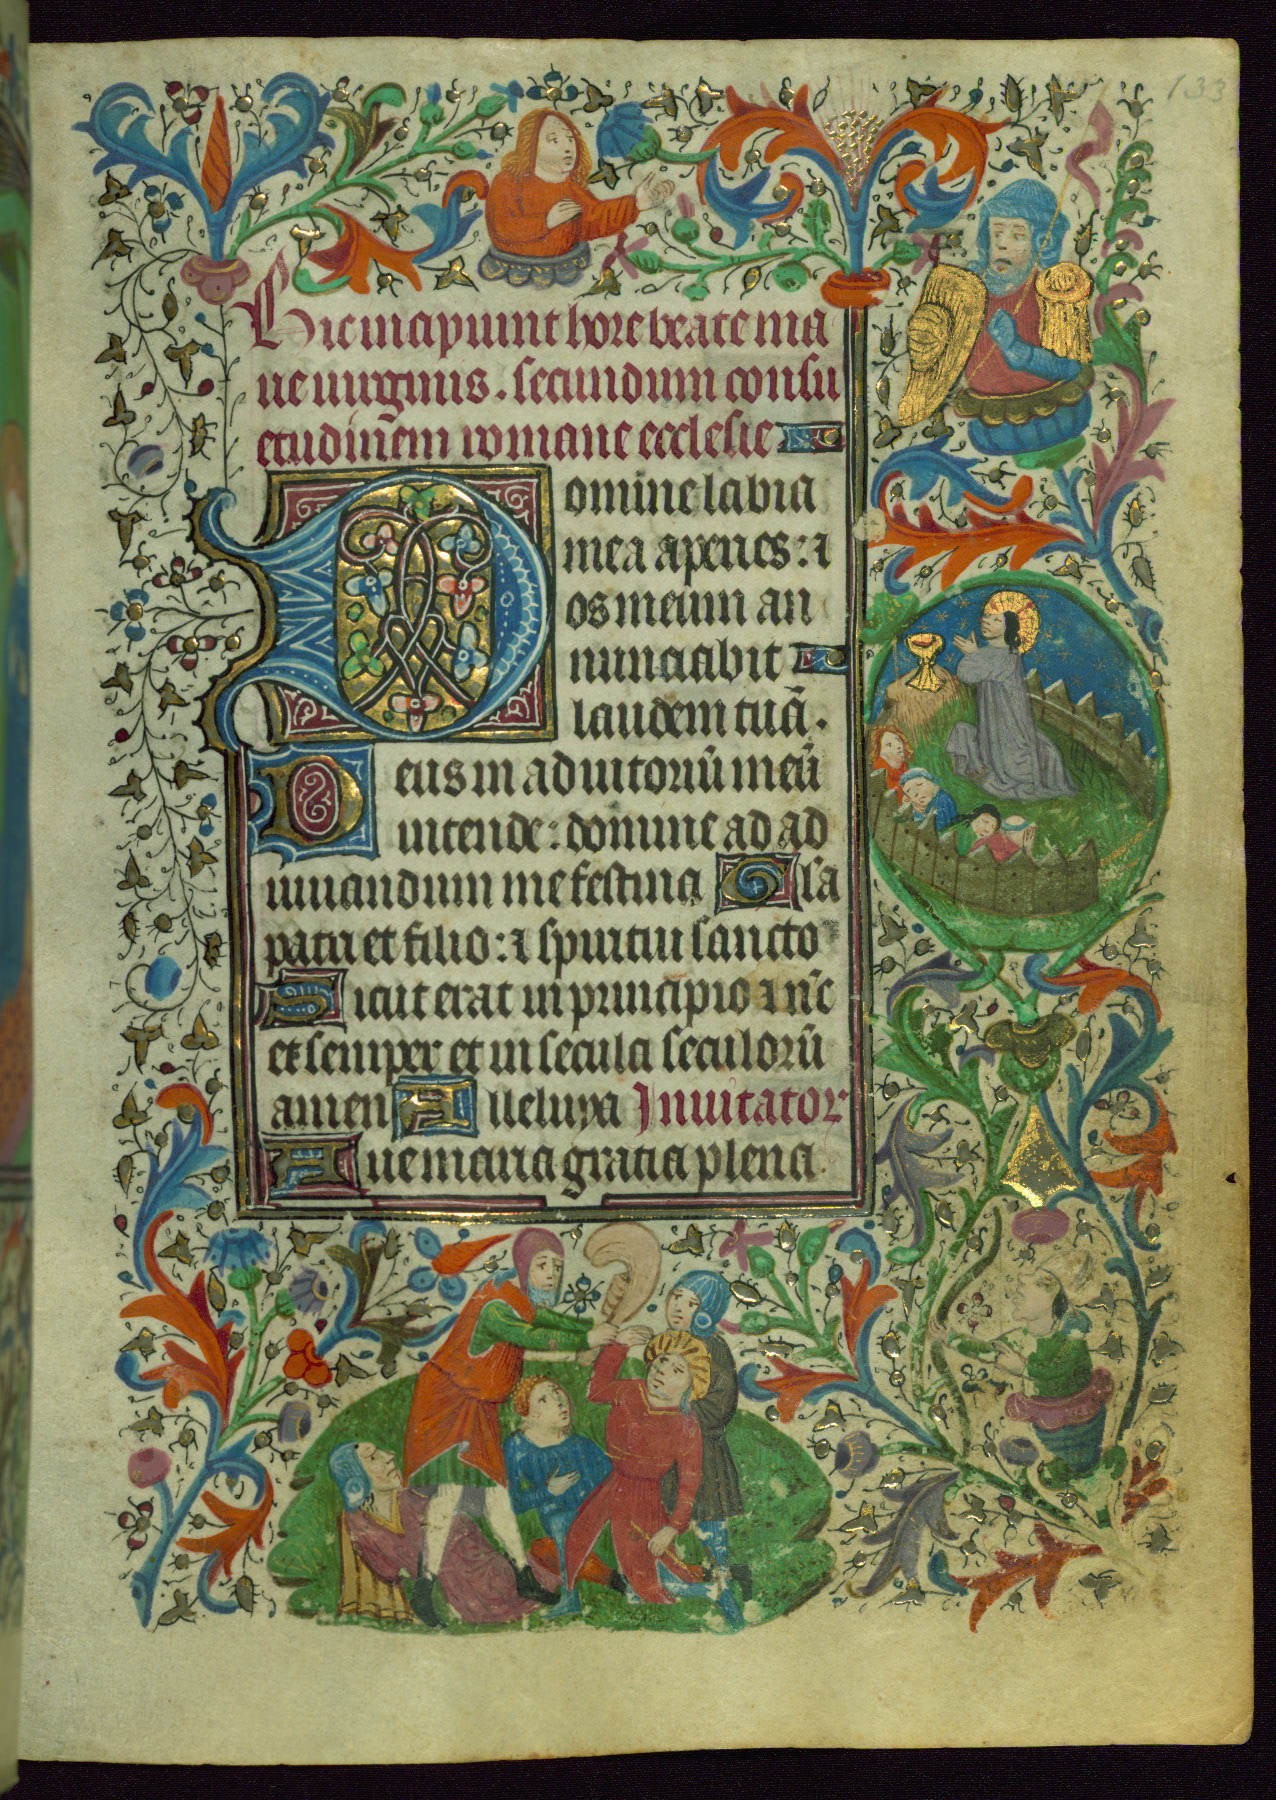 133
Hic incipiunt hore beate ma
rie uirginis. secundum consu
etudinem romane ecclesie
Domine labia
mea aperies: ⁊
os meum an
nunciabit
laudem tuā.
Deus in adiutoriū meū
intende: domine ad ad
iuuandum me festina Gla
patri et filio: ⁊ spiritui sancto
Sicut erat in principio ⁊ nc̄
et semper et in secula seculorū
amen Alleluya Inuitator
Aue maria gratia plena.